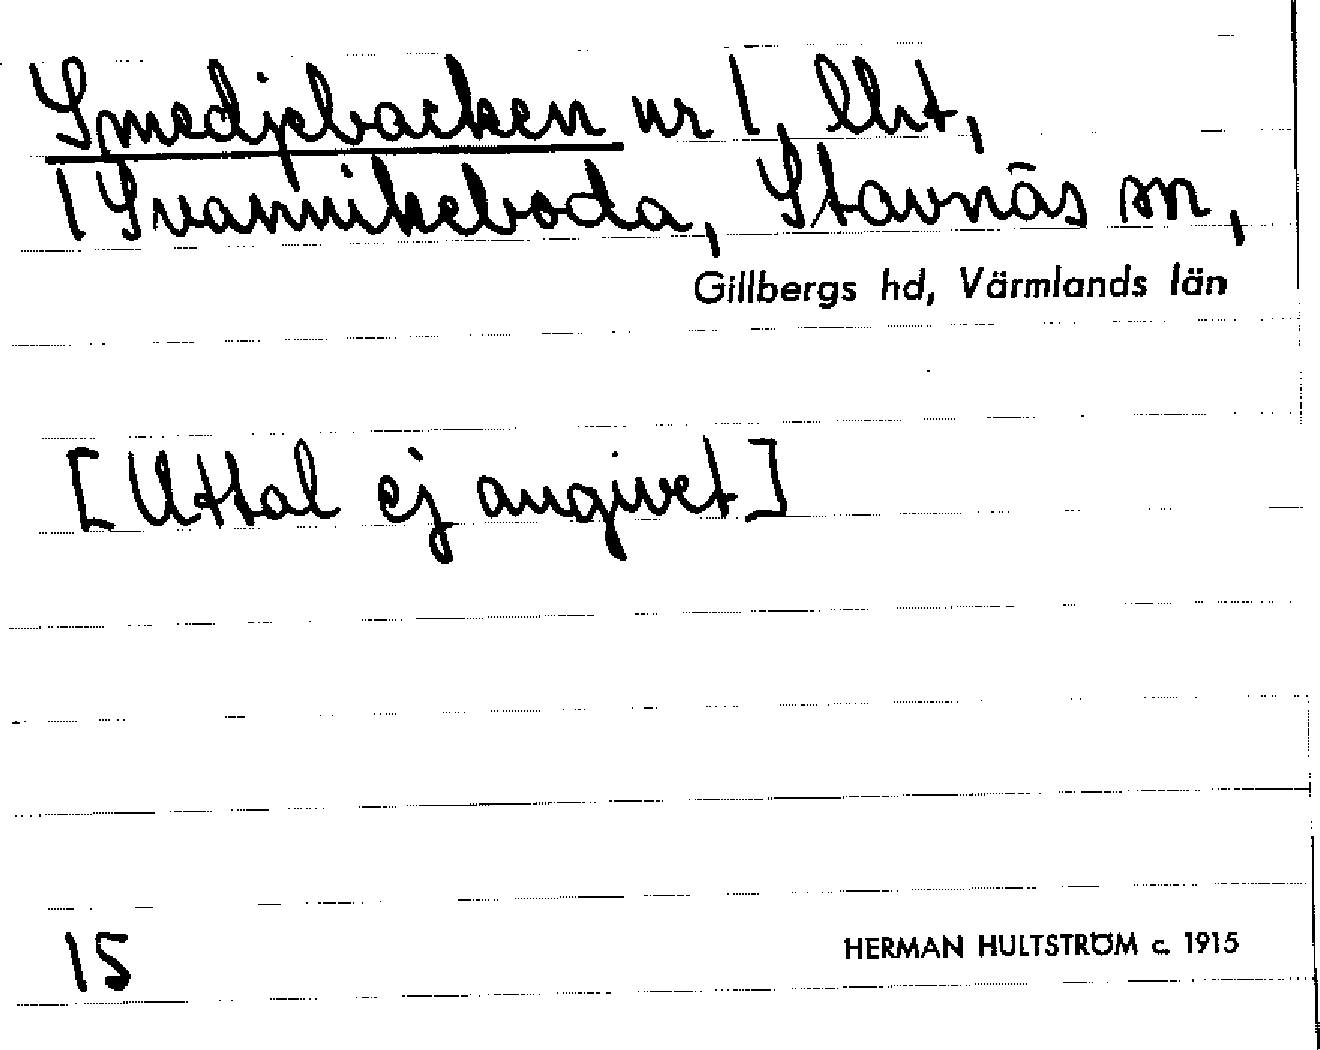 Smedjebacken nr 1, lht,
1 Svannikeboda, Stavnäs sn,
Gillbergs hd, Värmlands län
[Uttal ej angivet]
15
HERMAN HULTSTRÖM c. 1915